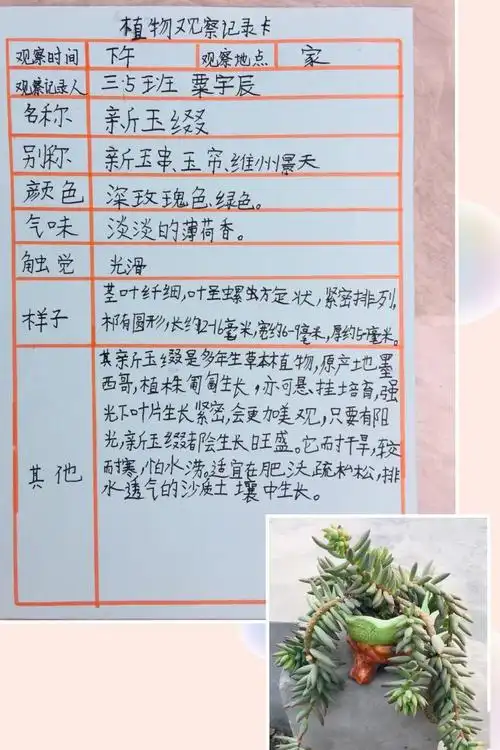 植物观察记录卡
观察时间 下午 观察地点 家
观察记录人 三.5班 粟宇辰
名称 新玉缀
别称 新玉串、玉帘、维州景天
颜色 深玫瑰色、绿色。
气味 淡淡的薄荷香。
触觉 光滑
样子 茎叶纤细,叶呈螺旋状,紧密排列,
有圆形,长约12-16毫米,宽约6-9毫米,厚约5毫米。
其他 其新玉缀是多年生草本植物,原产地墨
西哥,植株匍匐生长,亦可悬挂培育,强
光下叶片生长紧密,会更加美观,只要有阳
光,新玉缀都会生长旺盛。它耐干旱,较
耐寒,怕水涝。适宜在肥沃疏松,排
水透气的沙质土壤中生长。